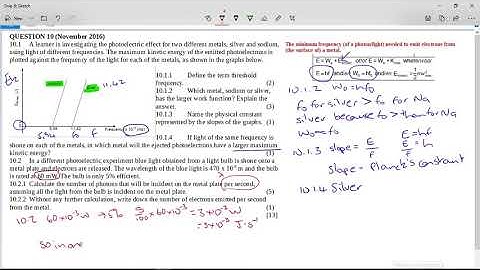 QUESTION 19 (November 2016)
10.1 A learner is investigating the photoelectric effect for two different metals, silver and sodium,
using light of different frequencies. The maximum kinetic energy of the emitted photoelectrons is
plotted against the frequency of the light for each of the metals, as shown in the graphs below.
10.1.1 Define the term threshold
frequency. (2)
10.1.2 Which metal, sodium or silver,
has the larger work function? Explain the
answer. (3)
10.1.3 Name the physical constant
represented by the slopes of the graphs.
(1)
10.1.4 If light of the same frequency is
shone on each of the metals, in which metal will the ejected photoelectrons have a larger maximum
kinetic energy? (1)
10.2 In a different photoelectric experiment blue light obtained from a light bulb is shone onto a
metal plate and electrons are released. The wavelength of the blue light is 470 x 10⁻⁹ m and the bulb
is rated at 60 mW. The bulb is only 5% efficient.
10.2.1 Calculate the number of photons that will be incident on the metal plate per second,
assuming all the light from the bulb is incident on the metal plate. (5)
10.2.2 Without any further calculation, write down the number of electrons emitted per second
from the metal. (1)
[13]
10.2 60×10⁻³ W → 5% 5/100 × 60×10⁻³ = 3×10⁻³ W
= 3×10⁻³ J·s⁻¹
The minimum energy (of a photon/light) needed to emit electrons from
(the surface of) a metal.
10.1.2 W₀ = hf₀
f₀ for silver > f₀ for Na
silver because f₀ > than for Na
W₀ ∝ f₀
10.1.3 slope = E/f E = hf
E/f = h
slope = Planck's constant
10.1.4 Silver